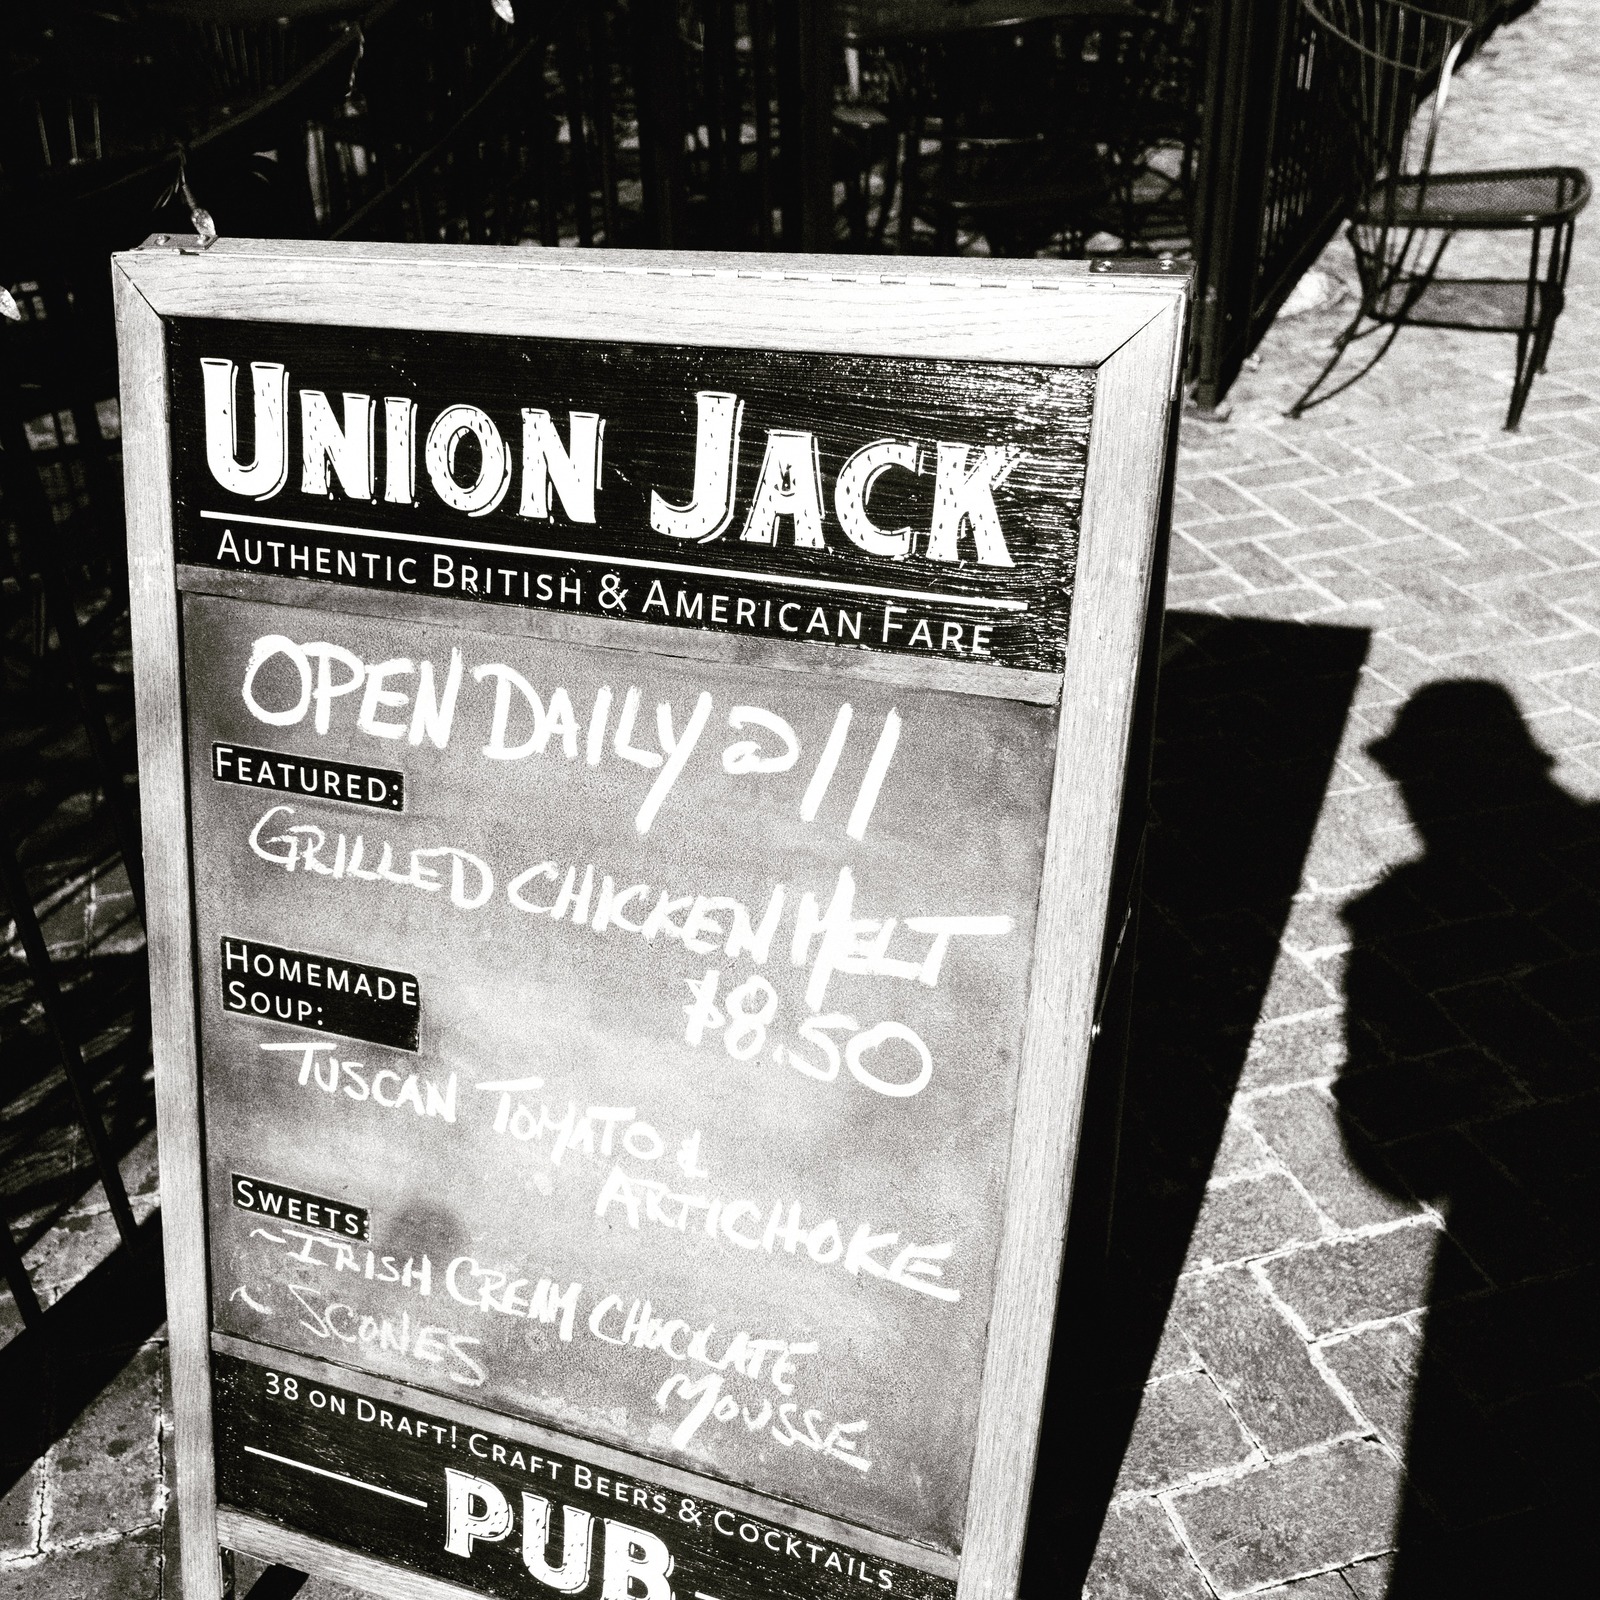 UNION JACK
AUTHENTIC BRITISH & AMERICAN FARE
OPEN DAILY @ 11
FEATURED:
GRILLED CHICKEN MELT
$8.50
HOMEMADE
SOUP:
TUSCAN TOMATO &
ARTICHOKE
SWEETS:
~IRISH CREAM CHOCOLATE
MOUSSE
~ SCONES
38 ON DRAFT! CRAFT BEERS & COCKTAILS
PUB